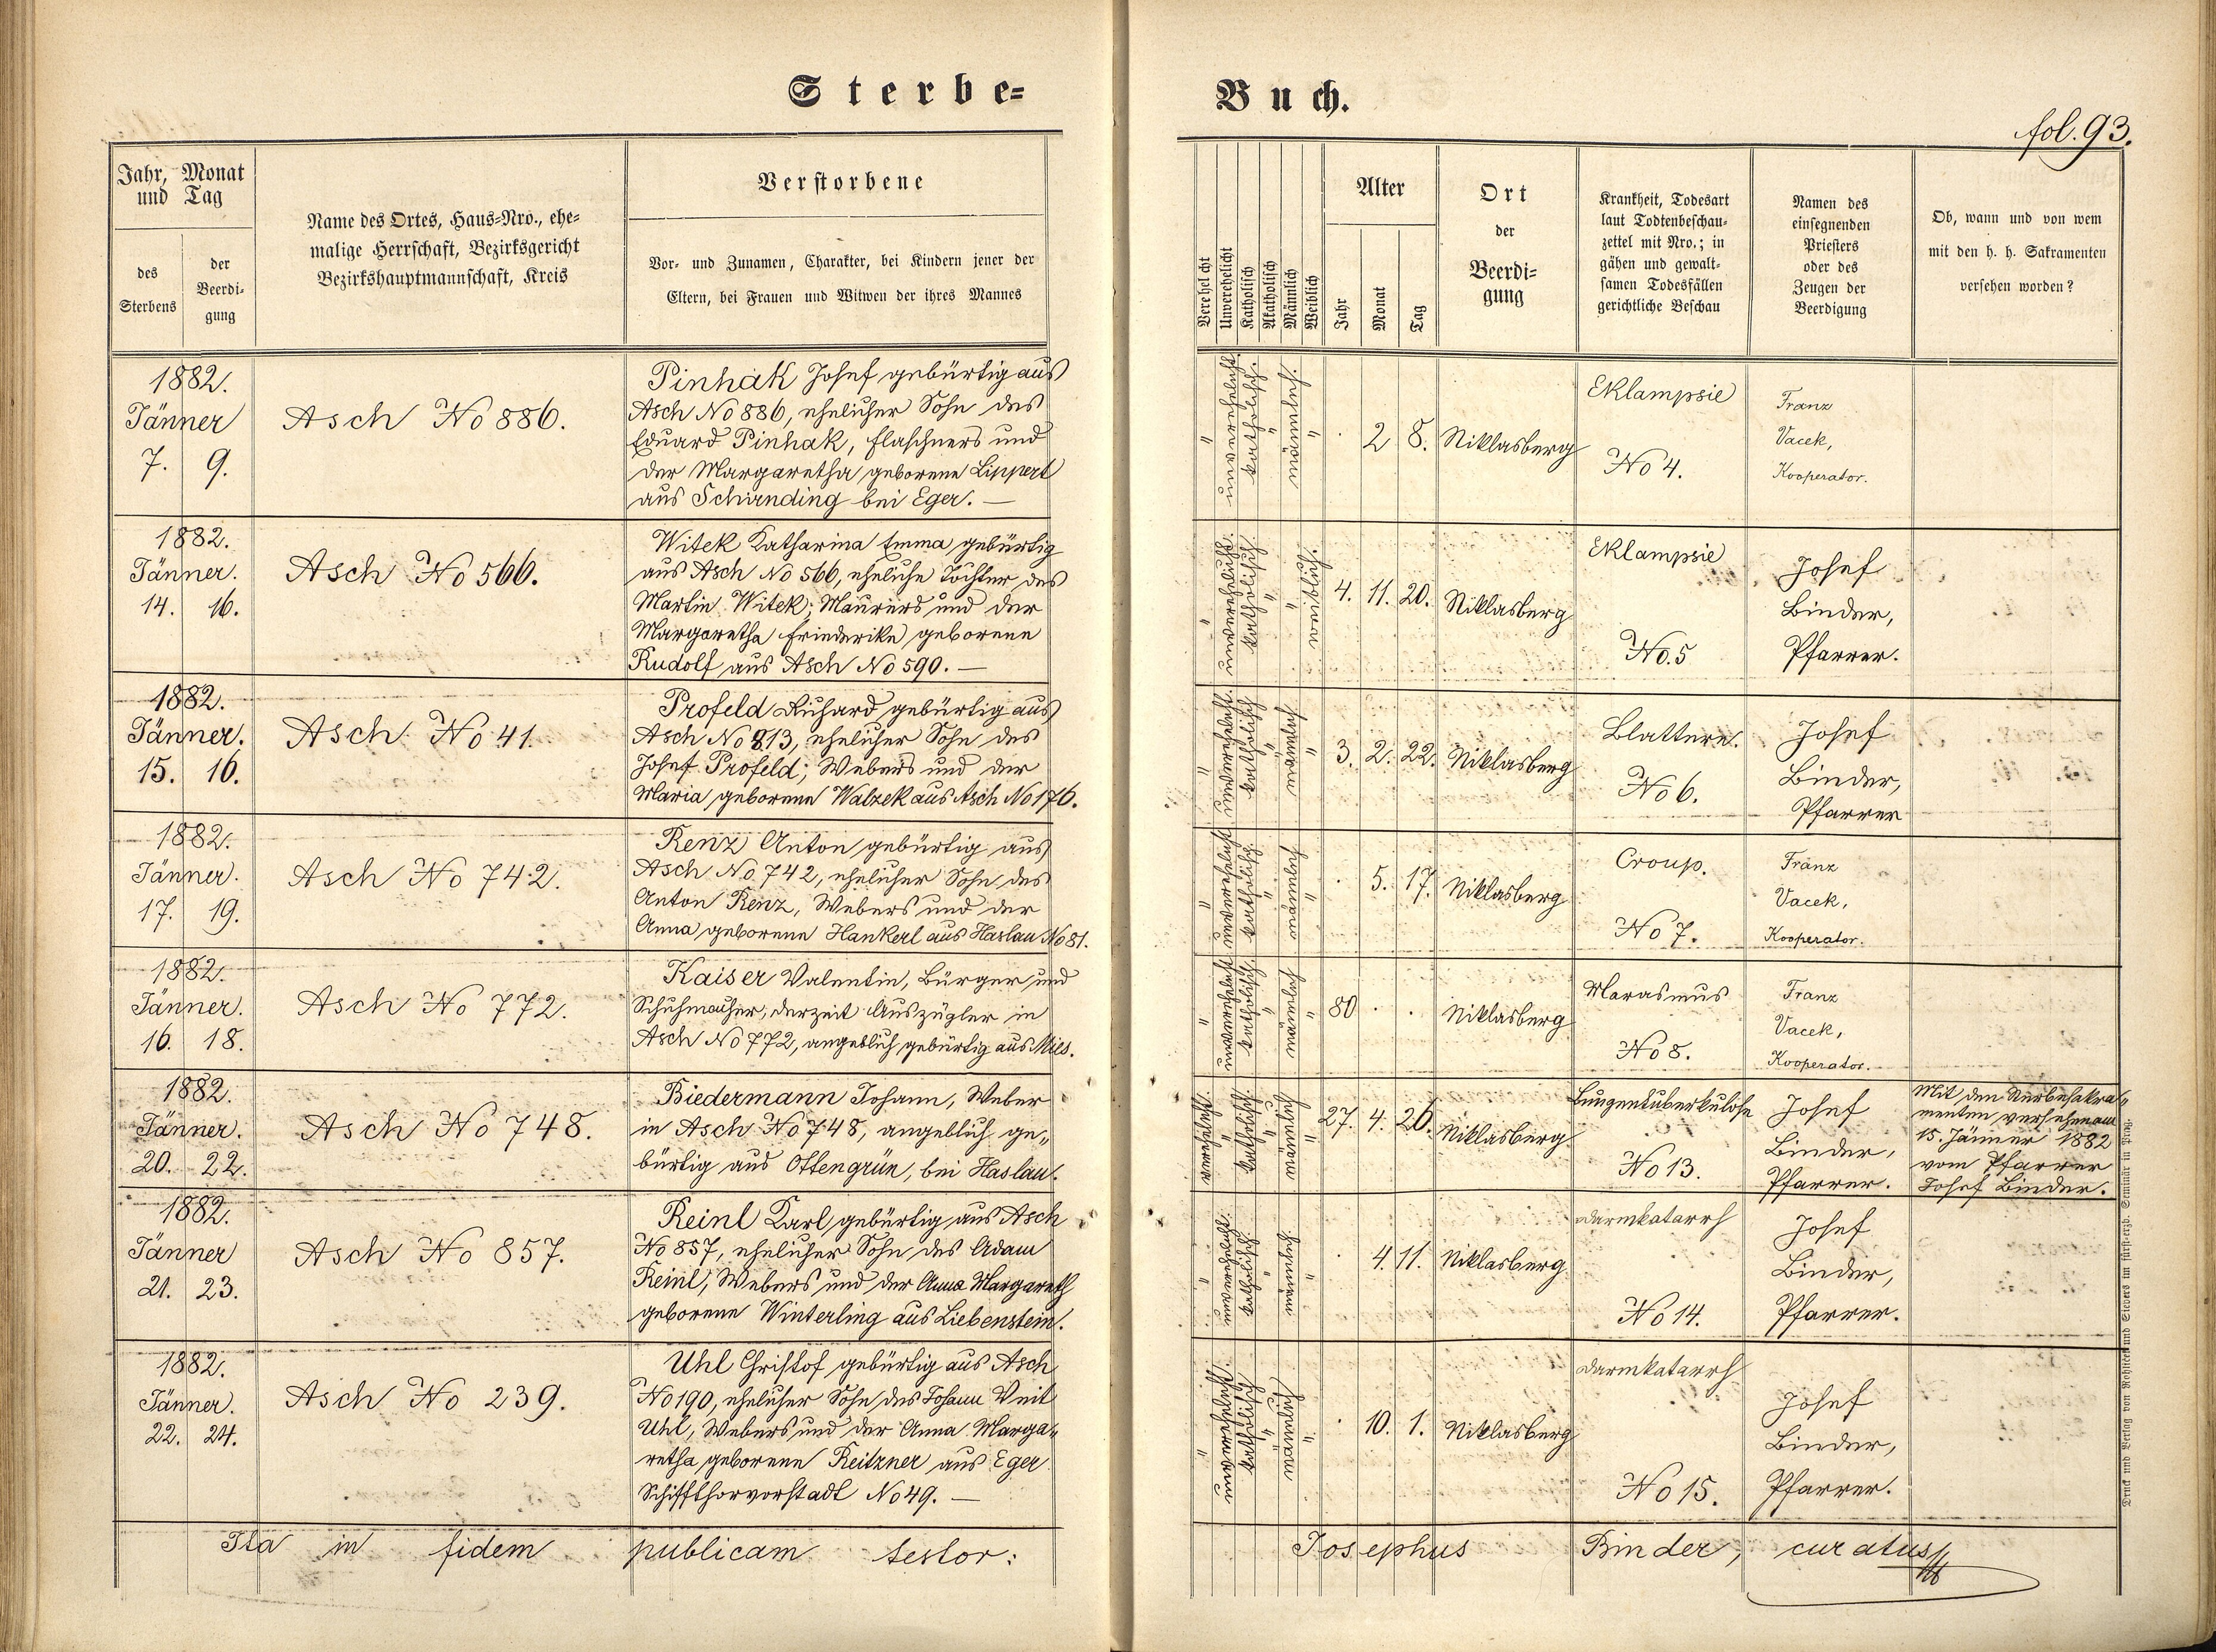 Sterbe-
Buch.
fol. 93.
Jahr, Monat
und Tag
des
Sterbens
der
Beerdi-
gung
Name des Ortes, Haus-Nro., ehe-
malige Herrschaft, Bezirksgericht
Bezirkshauptmannschaft, Kreis
Verstorbene
Vor- und Zunamen, Charakter, bei Kindern jener der
Eltern, bei Frauen und Witwen der ihres Mannes
Verehelicht
Unverehelicht
Katholisch
Akatholisch
Männlich
Weiblich
Alter
Jahr
Monat
Tag
Ort
der
Beerdi-
gung
Krankheit, Todesart
laut Todtenbeschau-
zettel mit Nro.; in
gähen und gewalt-
samen Todesfällen
gerichtliche Beschau
Namen des
einsegnenden
Priesters
oder des
Zeugen der
Beerdigung
Ob, wann und von wem
mit den h. h. Sakramenten
versehen worden?
1882.
Jänner
7. 9.
Asch No 886.
Pinhak Josef gebürtig aus
Asch No 886, ehelicher Sohn des
Eduard Pinhak, Flaschners und
der Margaretha geborene Lippert
aus Schirnding bei Eger. —
" unverehelicht katholisch. " männlich. "
. 2 8. Niklasberg
Eklampsie
No 4.
Franz
Vacek,
Kooperator.
1882.
Jänner.
14. 16.
Asch No 566.
Witek Katharina Emma, gebürtig
aus Asch No 566, eheliche Tochter des
Martin Witek, Maurers und der
Margaretha Friederike geborene
Rudolf aus Asch No 590. —
" unverehelicht. katholisch " " weiblich
4. 11. 20. Niklasberg
Eklampsie
No. 5
Josef
Binder,
Pfarrer.
1882.
Jänner.
15. 16.
Asch No 41.
Profeld Richard gebürtig aus
Asch No 813, ehelicher Sohn des
Josef Profeld, Webers und der
Maria geborene Walzek aus Asch No 176.
" unverehelicht katholisch " männlich "
3. 2. 22. Niklasberg
Blattern.
No 6.
Josef
Binder,
Pfarrer
1882.
Jänner.
17. 19.
Asch No 742.
Renz Anton gebürtig aus
Asch No 742, ehelicher Sohn des
Anton Renz, Webers und der
Anna geborene Hankerl aus Haslau No 81.
" unverehelicht katholisch. " männlich "
. 5. 17. Niklasberg
Croup.
No 7.
Franz
Vacek,
Kooperator.
1882.
Jänner.
16. 18.
Asch No 772.
Kaiser Valentin, Bürger und
Schuhmacher, derzeit Auszügler in
Asch No 772, angeblich gebürtig aus Mies.
" unverehelicht katholisch. " männlich "
80 . . Niklasberg
Marasmus
No 8.
Franz
Vacek,
Kooperator.
1882.
Jänner.
20. 22.
Asch No 748.
Biedermann Johann, Weber
in Asch No 748, angeblich ge„
bürtig aus Ottengrün, bei Haslau.
verehelicht " katholisch. " männlich "
27. 4. 26. Niklasberg
Lungentuberkulose
No 13.
Josef
Binder,
Pfarrer.
Mit den Sterbesakra„
menten versehen am
15. Jänner 1882
vom Pfarrer
Josef Binder.
1882.
Jänner
21. 23.
Asch No 857.
Reinl Karl gebürtig aus Asch
No 857, ehelicher Sohn des Adam
Reinl, Webers und der Anna Margareth
geborene Winterling aus Liebenstein.
" unverehelicht. katholisch. " männlich "
. 4. 11. Niklasberg
Darmkatarrh
No 14.
Josef
Binder,
Pfarrer.
1882.
Jänner.
22. 24.
Asch No 239.
Uhl Christof gebürtig aus Asch
No 190, ehelicher Sohn des Johann Veit
Uhl, Webers und der Anna Marga„
retha geborene Reitzner aus Eger
Schiffthorvorstadt No 49. —
" unverehelicht. katholisch " männlich "
. 10. 1. Niklasberg
Darmkatarrh
No 15.
Josef
Binder,
Pfarrer.
Ita in fidem publicam testor: Josephus Binder, curatus
Druck und Verlag von Rohliček und Sievers im fürst-erzb. Seminär in Prag.